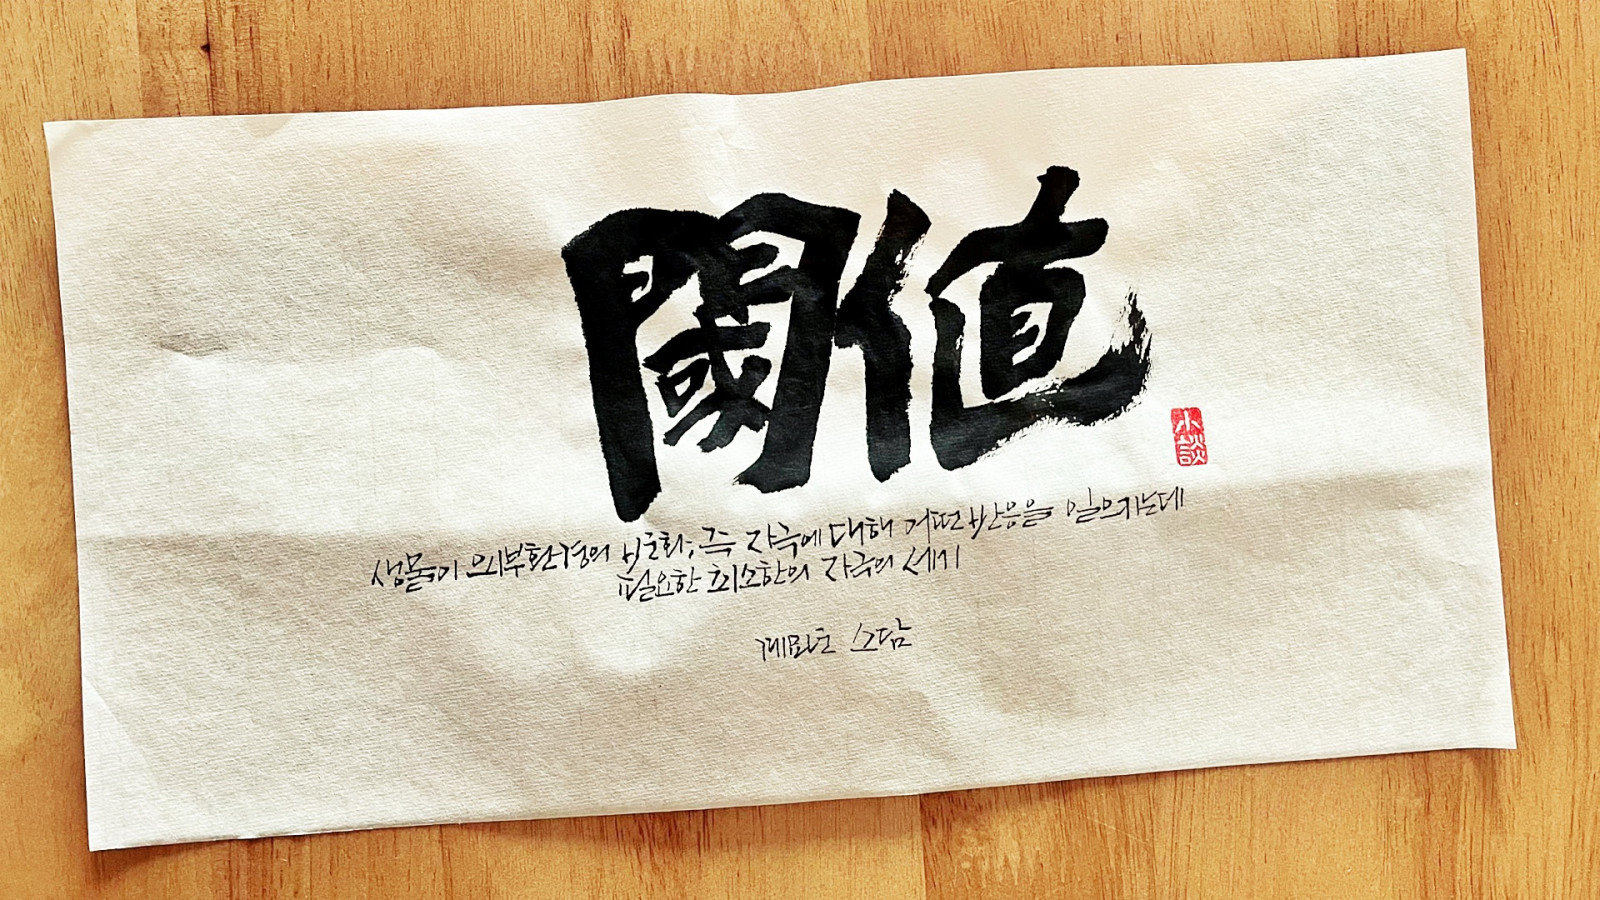 閾値
小談
생물이 외부환경의 변화, 즉 자극에 대해 어떤 반응을 일으키는데
필요한 최소한의 자극의 세기
계묘년 소담